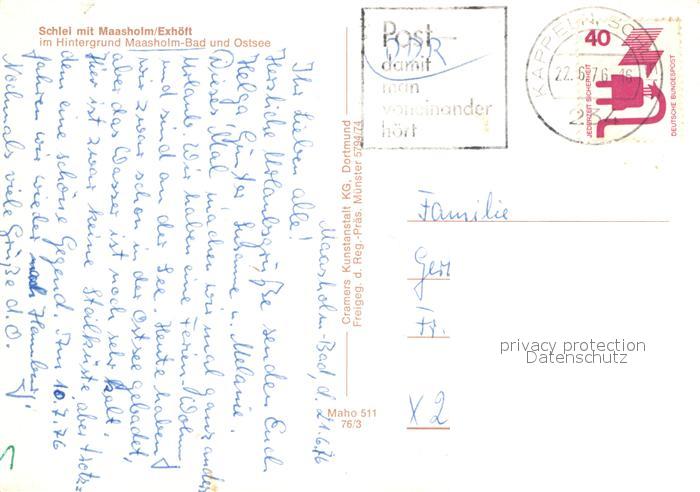 Schlei mit Maasholm/Exhöft
im Hintergrund Maasholm-Bad und Ostsee
Maasholm-Bad, d. 21.6.76
Ihr lieben alle!
Herzliche Urlaubsgrüße senden Euch
Helga, Günter, Susanne u. Melanie.
Dieses Mal machen wir mal ganz anders
Urlaub. Wir haben eine Ferien-Wohng
und sind an der See. Heute haben
wir zwar schon in der Ostsee gebadet,
aber das Wasser ist noch sehr kalt.
Hier ist zwar keine Steilküste, aber trotz-
dem eine schöne Gegend. Am 10.7.76
fahren wir wieder nach Hamburg.
Nochmals viele Grüße d. O.
Cramers Kunstanstalt KG, Dortmund
Freigeg. d. Reg.-Präs. Münster 5794/74
Maho 511
76/3
Post -
damit
man
voneinander
hört
DDR
KAPPELN
22.6.76-16
40
JEDERZEIT SICHERHEIT
DEUTSCHE BUNDESPOST
Familie
Fr.
X2
privacy protection
Datenschutz